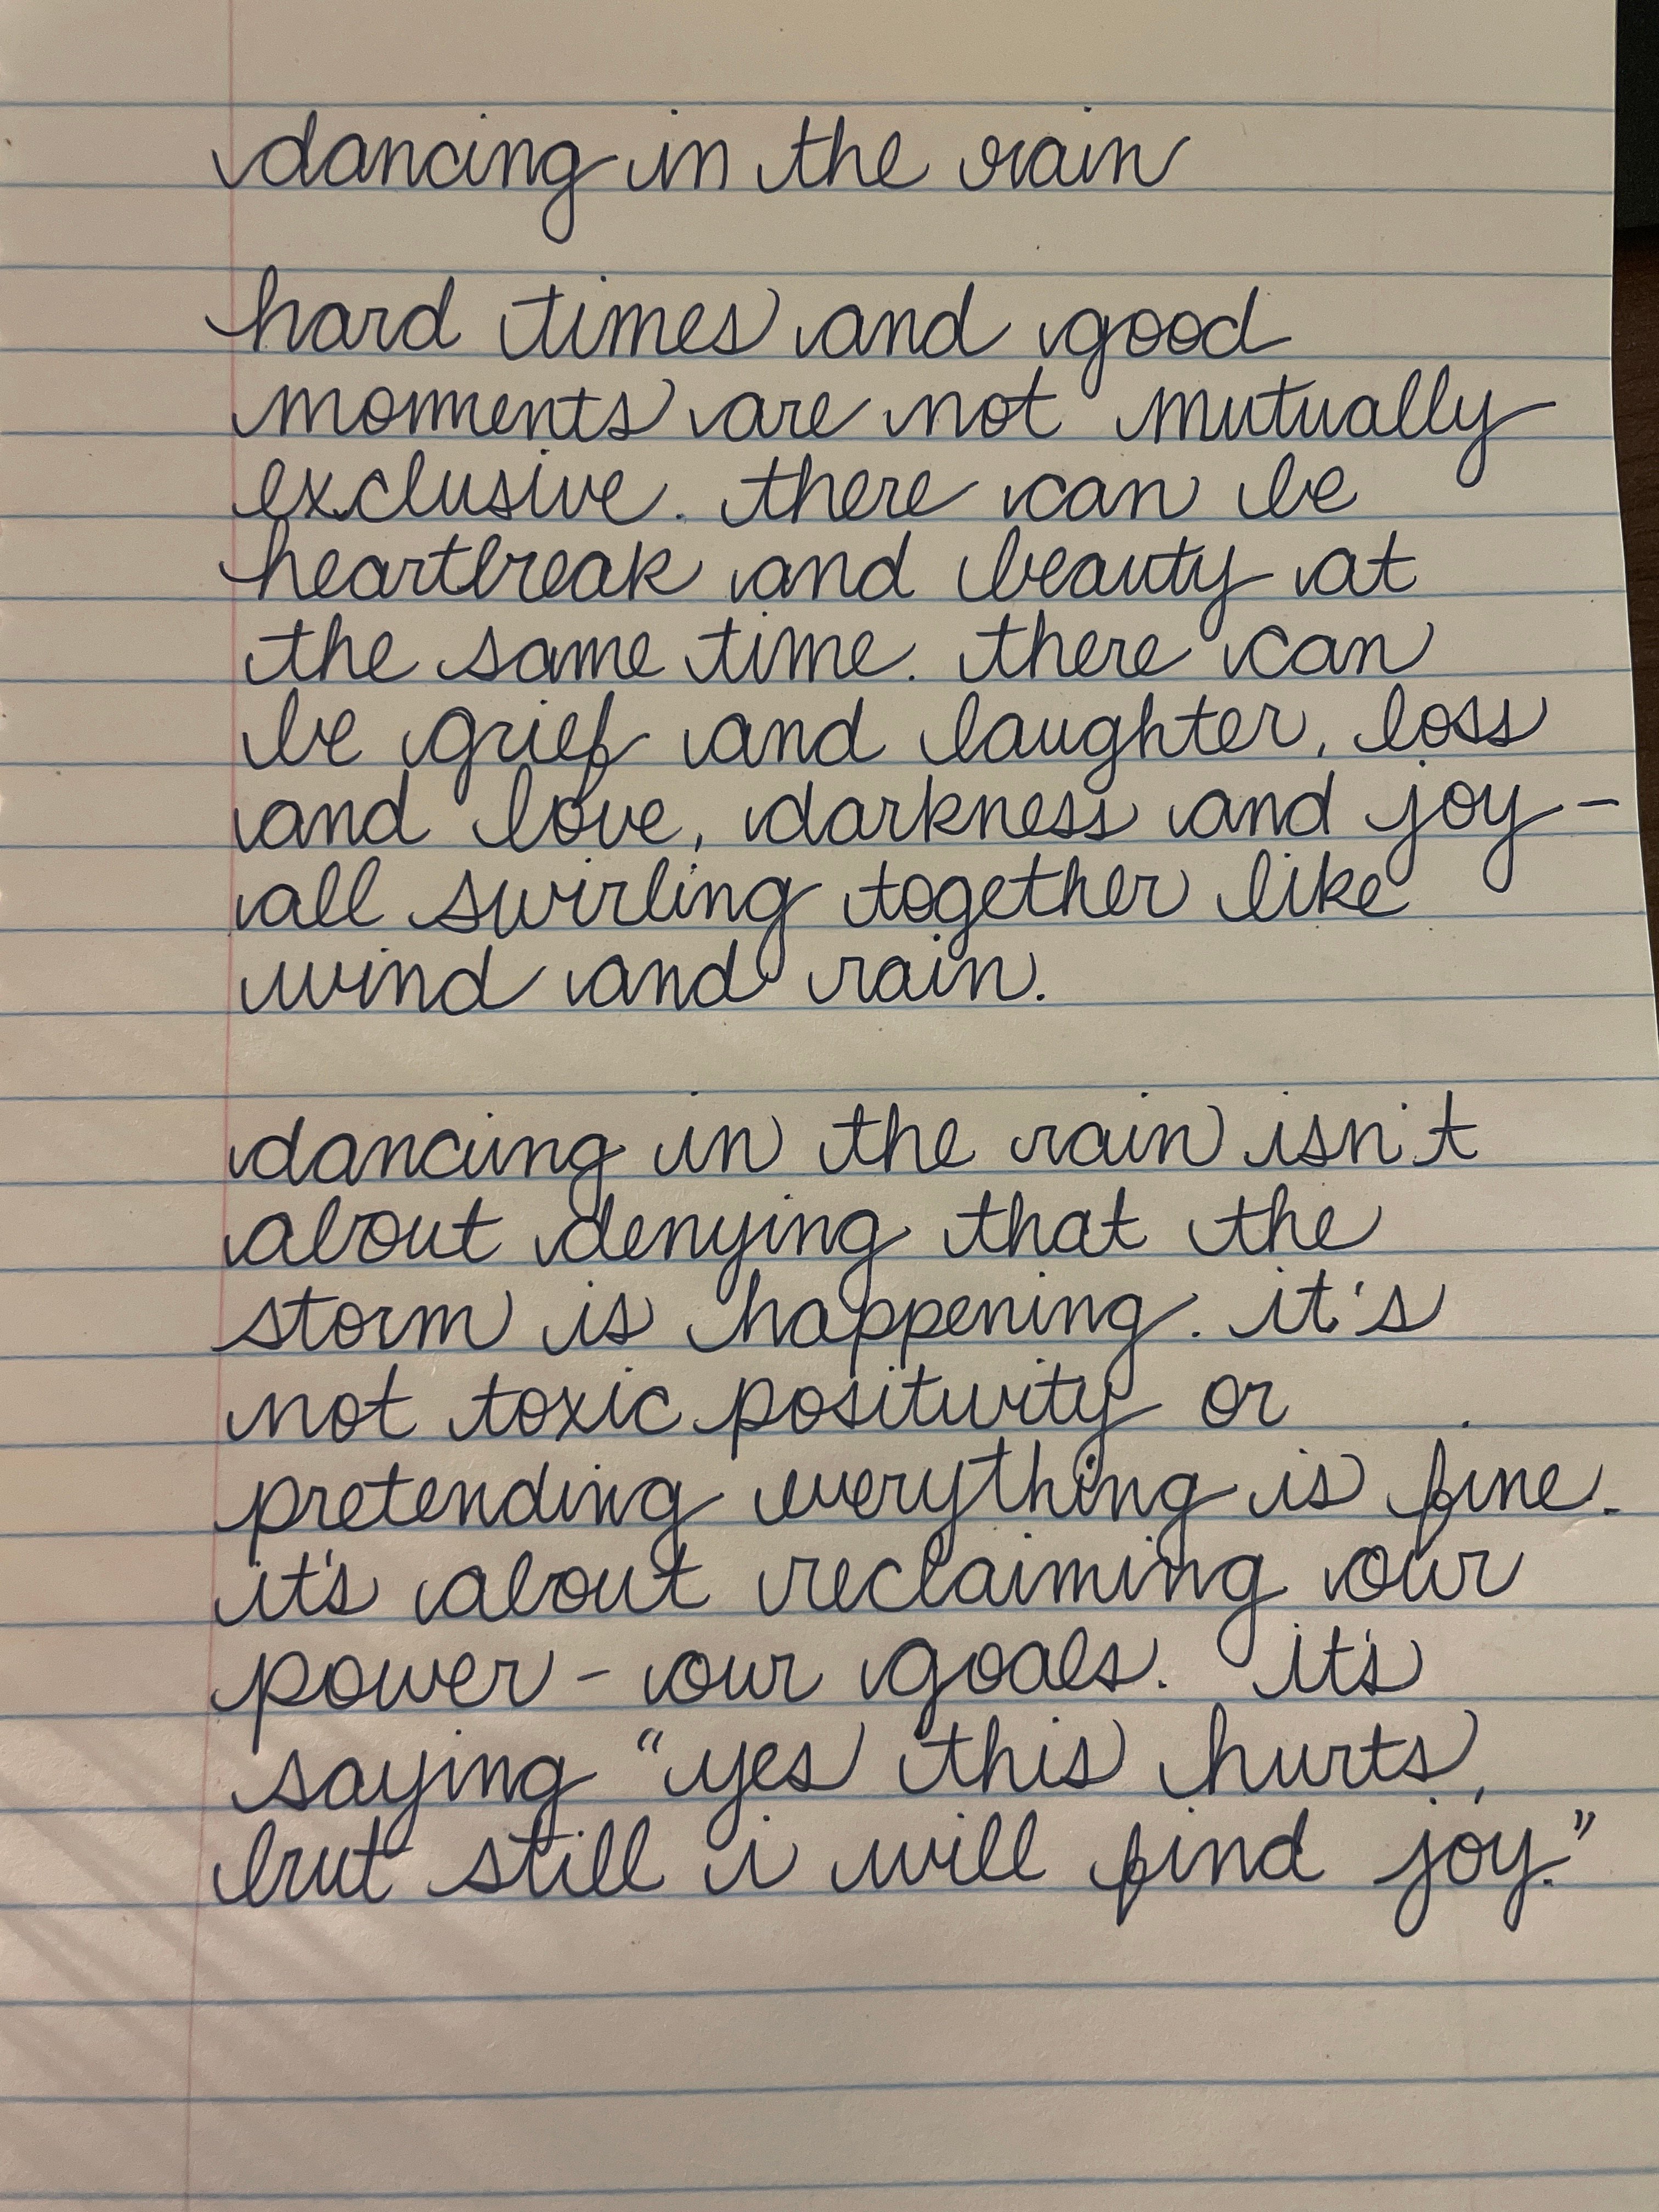 dancing in the rain
hard times and good
moments are not mutually
exclusive. there can be
heartbreak and beauty at
the same time. there can
be grief and laughter, loss
and love, darkness and joy -
all swirling together like
wind and rain.
dancing in the rain isn't
about denying that the
storm is happening. it's
not toxic positivity or
pretending everything is fine.
it's about reclaiming our
power - our goals. it's
saying "yes this hurts,
but still i will find joy."